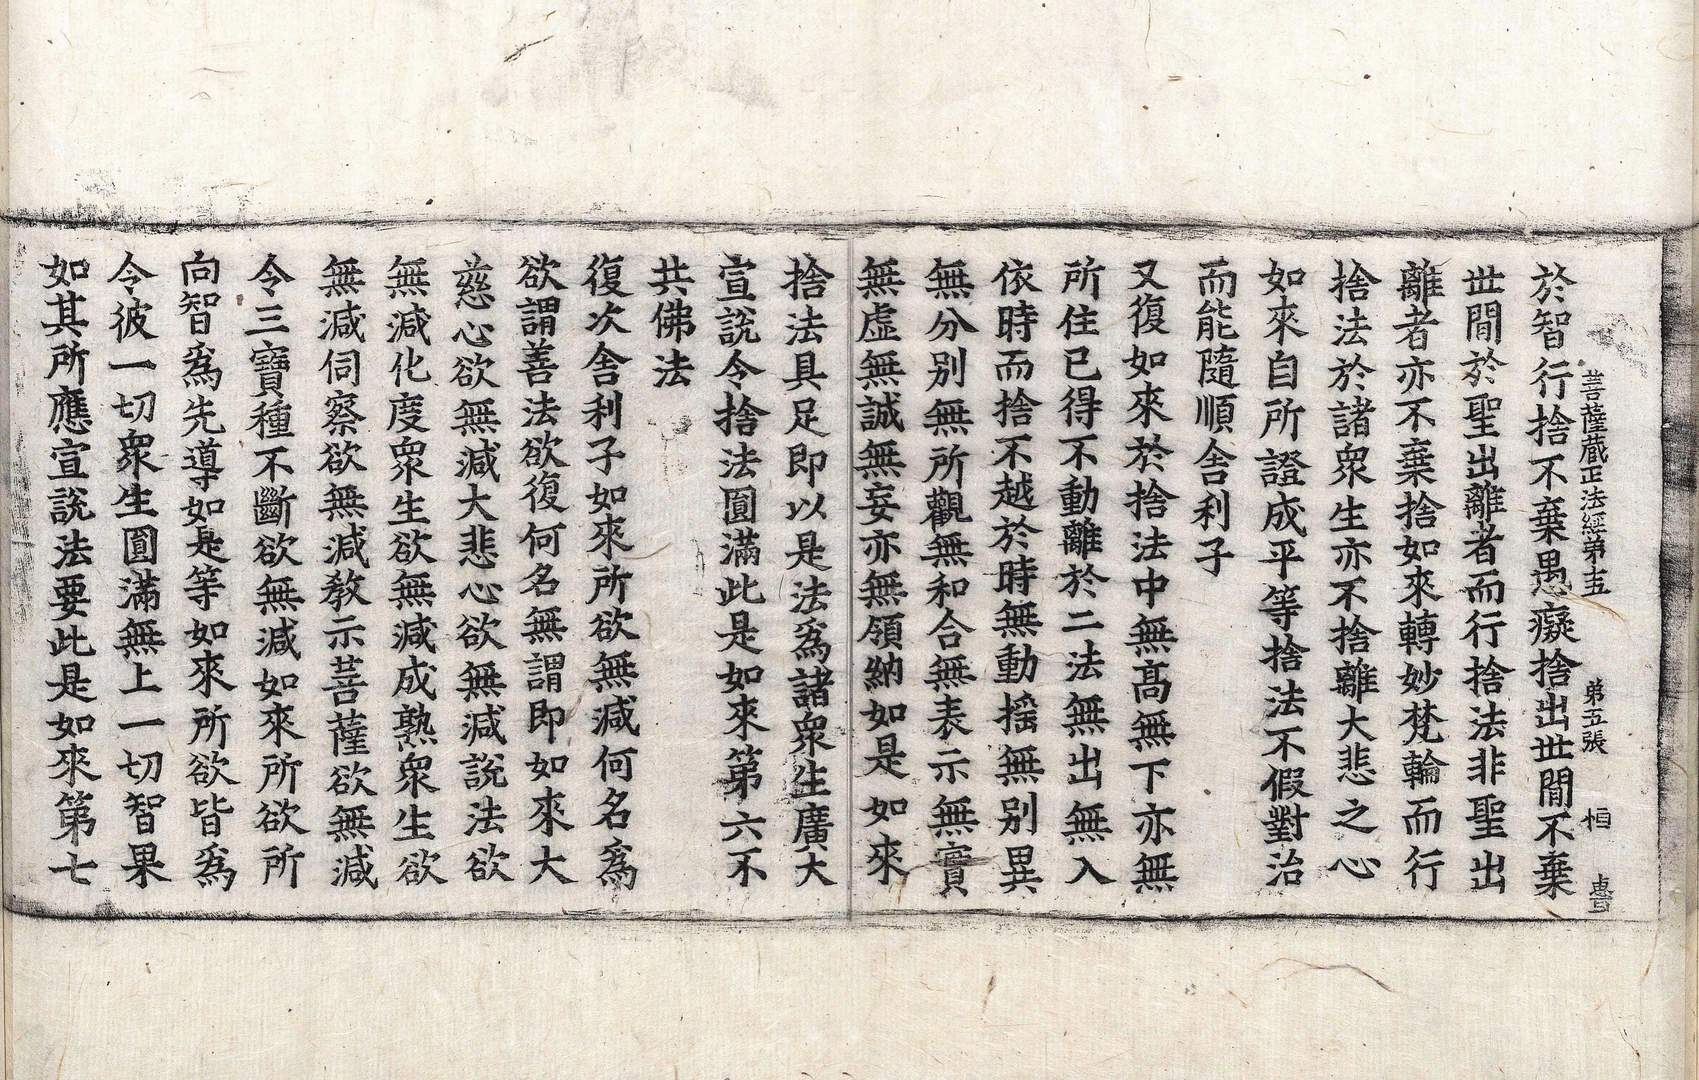 菩薩藏正法經第十五　第五張　恒　惠
於智行捨不棄愚癡捨出世間不棄
世間於聖出離者而行捨法非聖出
離者亦不棄捨如來轉妙梵輪而行
捨法於諸衆生亦不捨離大悲之心
如來自所證成平等捨法不假對治
而能隨順舍利子
又復如來於捨法中無髙無下亦無
所住已得不動離於二法無出無入
依時而捨不越於時無動揺無别異
無分别無所觀無和合無表示無實
無虛無誠無妄亦無領納如是如來
捨法具足即以是法爲諸衆生廣大
宣說令捨法圓滿此是如來第六不
共佛法
復次舍利子如來所欲無減何名爲
欲謂善法欲復何名無謂即如來大
慈心欲無減大悲心欲無減說法欲
無減化度衆生欲無減成熟衆生欲
無減伺察欲無減教示菩薩欲無減
令三寶種不斷欲無減如來所欲所
向智爲先導如是等如來所欲皆爲
令彼一切衆生圓滿無上一切智果
如其所應宣說法要此是如來第七